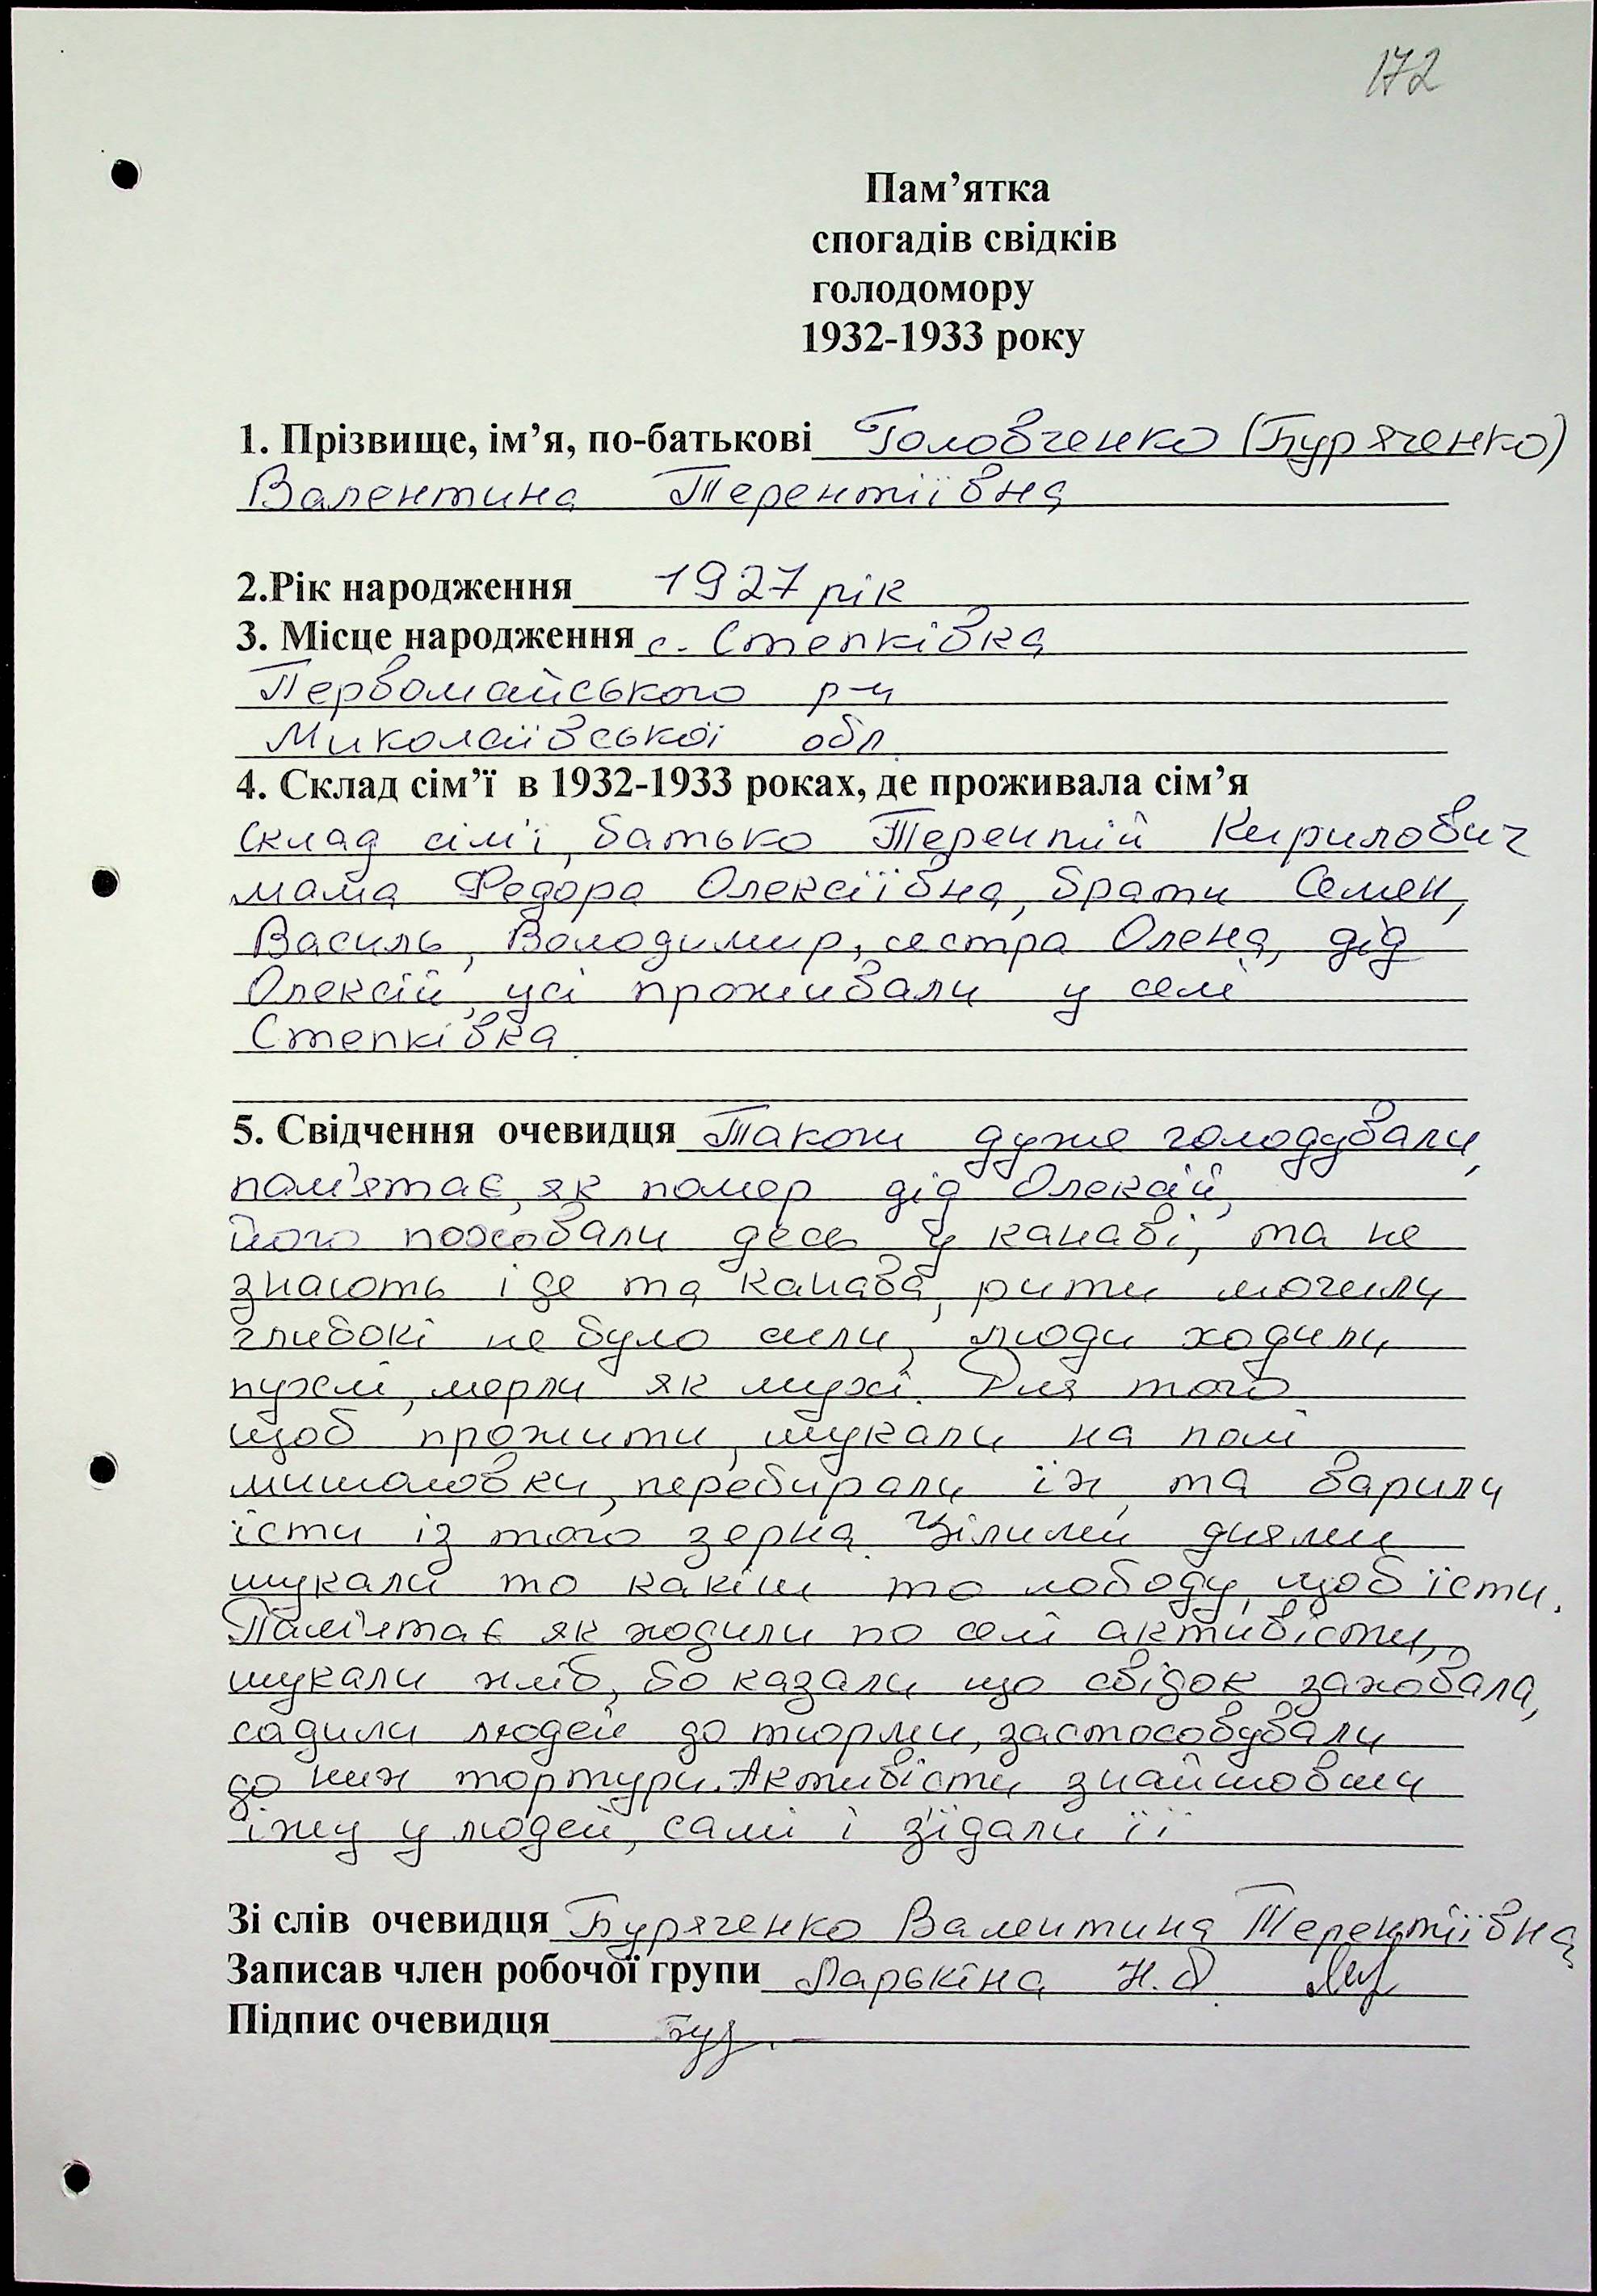 172
Пам’ятка
спогадів свідків
голодомору
1932-1933 року
1. Прізвище, ім’я, по-батькові Головченко (Буряченко)
Валентина Терентіївна
2.Рік народження 1927 рік
3. Місце народження с. Степківка
Первомайського р-н
Миколаївської обл
4. Склад сім’ї в 1932-1933 роках, де проживала сім’я
склад сім'ї, батько Терентій Кирилович
мама Федора Олексіївна, брати Семен,
Василь, Володимир, сестра Олена, дід
Олексій, усі проживали у селі
Степківка.
5. Свідчення очевидця Також дуже голодували,
пам'ятає, як помер дід Олексій,
його поховали десь у канаві, та не
знають і де та канава, рити могили
глибокі не було сили, люди ходили
пухлі, мерли як мухі. Для того
щоб прожити, шукали на полі
мишаловки, перебирали їх, та варили
їсти із того зерна. Цілими днями
шукали то какіш то лободу, щоб їсти.
Пам'ятає як ходили по селі активісти,
шукали хліб, бо казали що свідок заховала,
садили людей до тюрми, застосовували
до них тортури. Активісти знайшовши
їжу у людей, самі і з'їдали її
Зі слів очевидця Буряченко Валентина Терентіївна
Записав член робочої групи Ларькіна Н.О.
Підпис очевидця Бур.